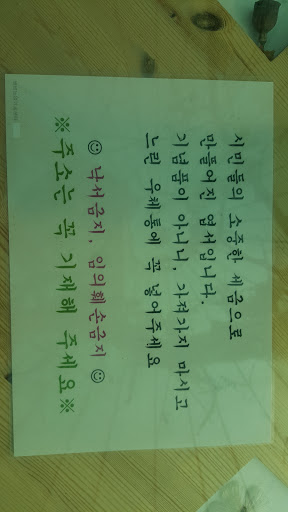 시민들의 소중한 세금으로
만들어진 엽서입니다.
기념품이 아니니, 가져가지 마시고
느린 우체통에 꼭 넣어주세요
☺ 낙서금지, 임의훼손금지 ☺
※ 주소는 꼭 기재해 주세요※